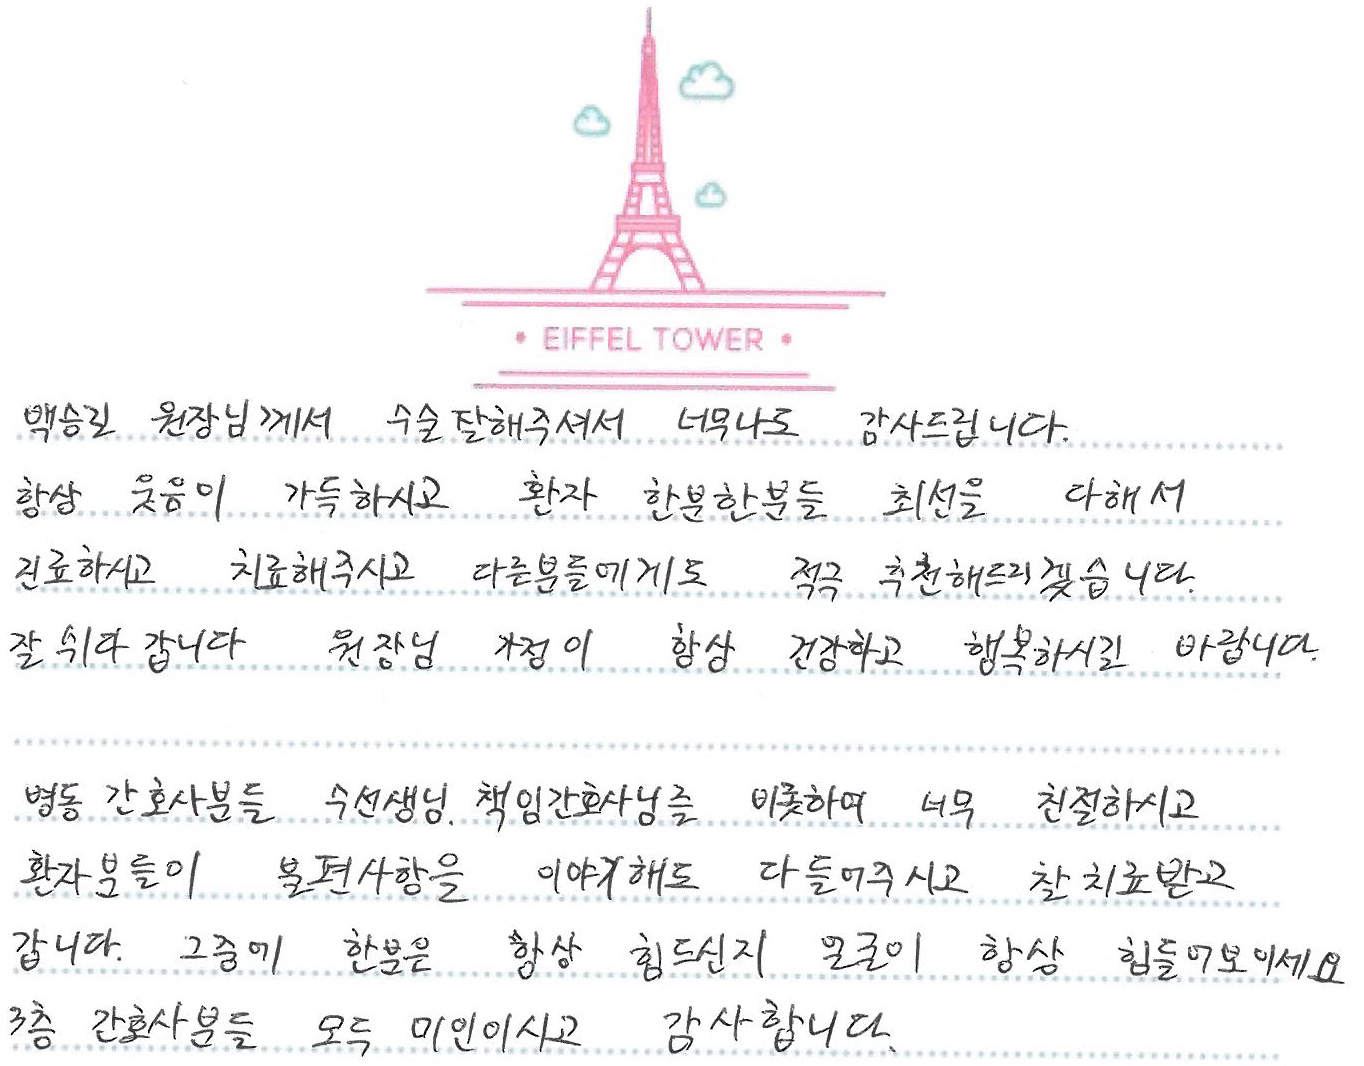 EIFFEL TOWER
백승길 원장님께서 수술 잘해주셔서 너무나도 감사드립니다.
항상 웃음이 가득하시고 환자 한분한분들 최선을 다해서
진료하시고 치료해주시고 다른분들에게도 적극 추천해드리겠습니다.
잘 쉬다 갑니다 원장님 가정이 항상 건강하고 행복하시길 바랍니다.
병동 간호사분들 수선생님, 책임간호사님을 비롯하여 너무 친절하시고
환자분들이 불편사항을 이야기해도 다 들어주시고 잘 치료받고
갑니다. 그중에 한분은 항상 힘드신지 얼굴이 항상 힘들어보이세요
3층 간호사분들 모두 미인이시고 감사합니다.